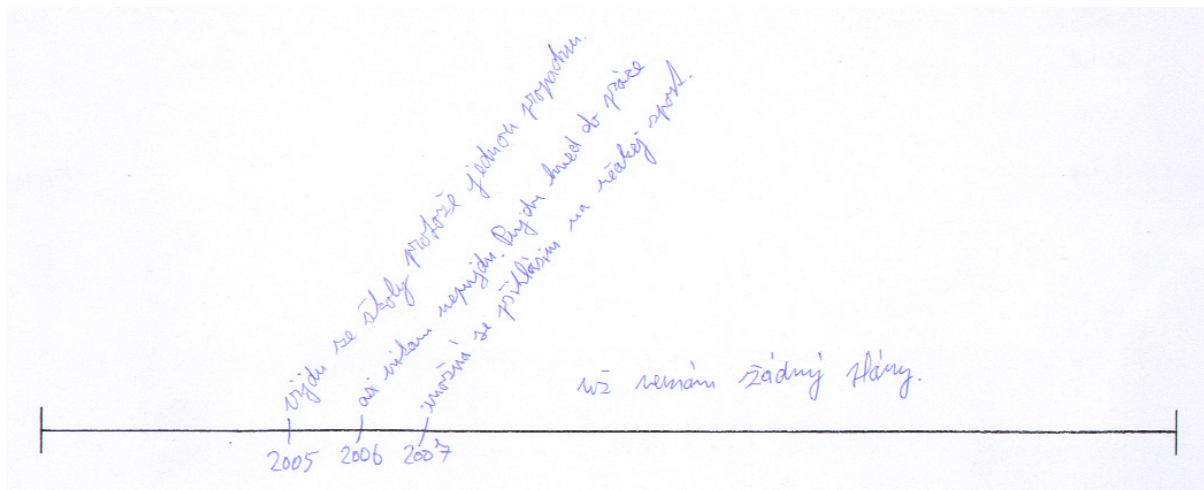 vijdu ze školy protože jednou propadnu.
asi nikam nepujdu. Pujdu hned do práce
možná se přihlásim na ňeákej sport.
už nemám žádný plány.
2005 2006 2007